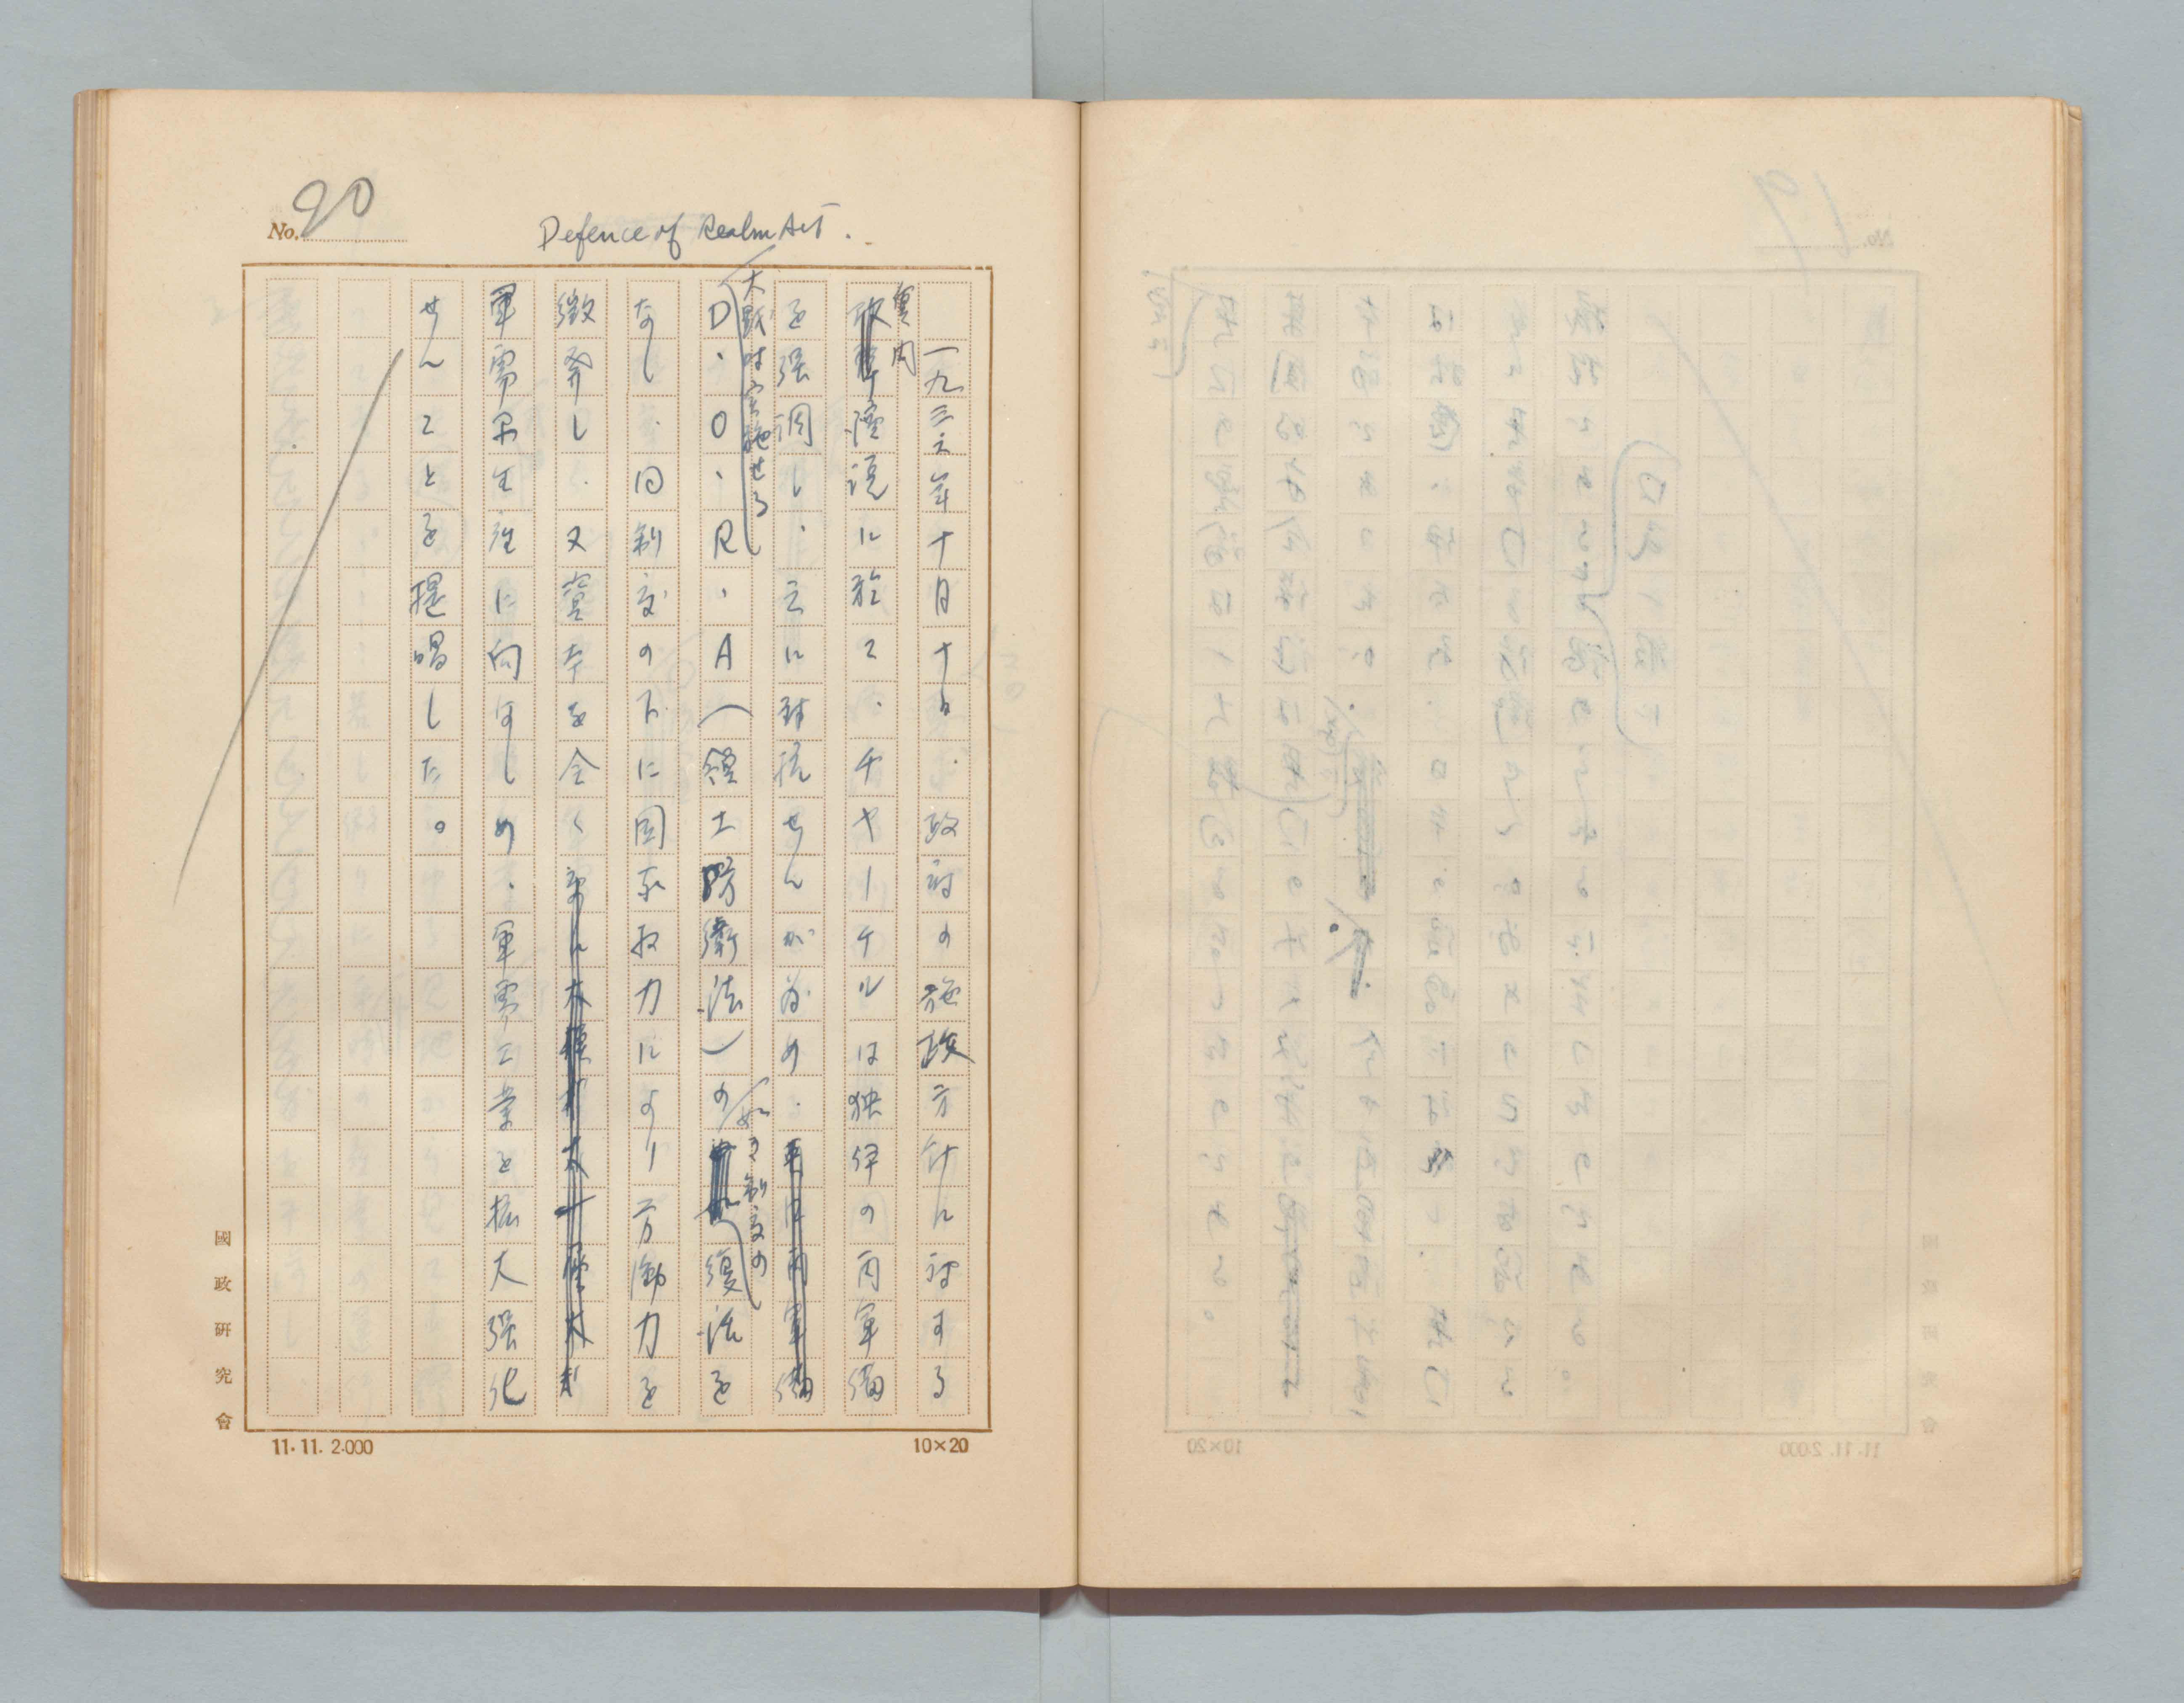 No. 20
Defence of Realm Act.
一九三六年十月十日、政府の施政方針に対する
演説に於て、チヤーチルは独伊の再軍備
を強調し、之に対抗せんが為め、
大戦時実施せる
D、O、R、A(領土防衛法)の
如き制度の
復活を
なし、同制度の下に国家权力により労働力を
徴発し、又資本を全く
軍需品生産に向はしめ、軍需工業を拡大強化
せんことを提唱した。
國政研究會
11.11. 2.000
10×20